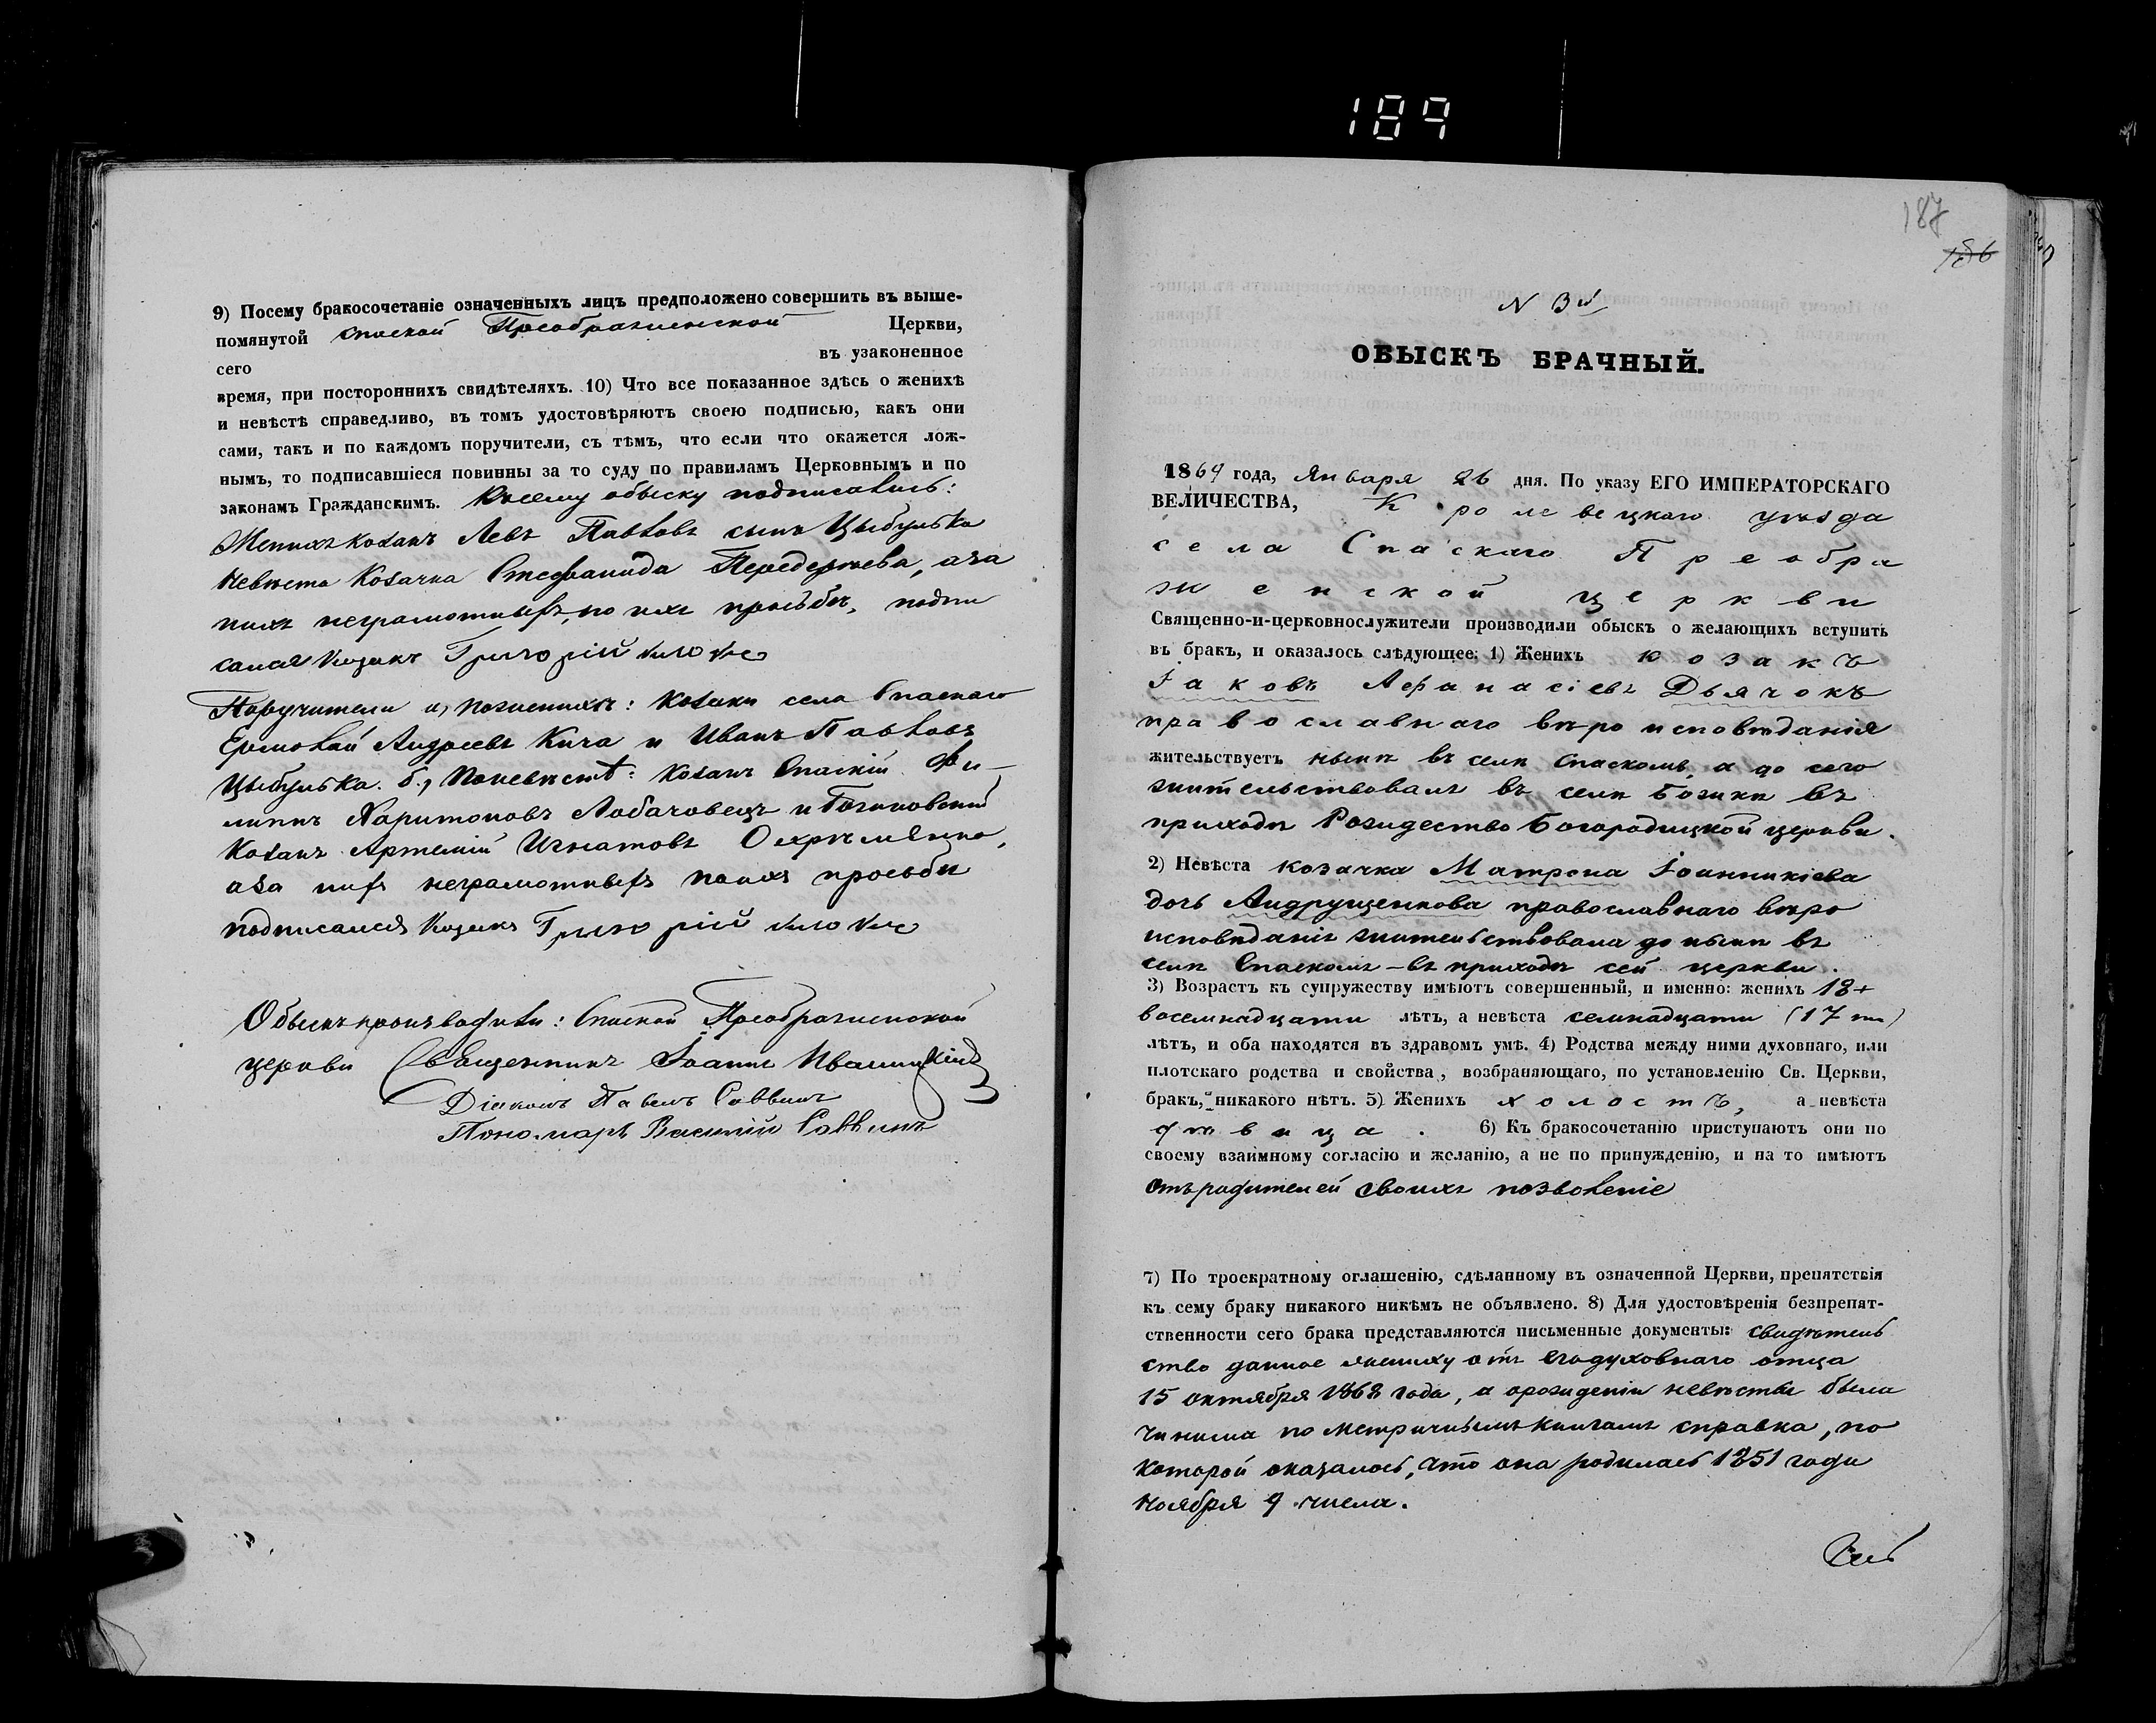 189
187
186
9) Посему бракосочетаніе означенныхъ лицъ предположено совершить въ выше-
помянутой Спаской Преображенской Церкви,
сего въ узаконенное
время, при постороннихъ свидѣтеляхъ. 10) Что все показанное здѣсь о женихѣ
и невѣстѣ справедливо, въ томъ удостовѣряютъ своею подписью, какъ они
сами, такъ и по каждомъ поручители, съ тѣмъ, что если что окажется лож-
нымъ, то подписавшіеся повинны за то суду по правиламъ Церковнымъ и по
законамъ Гражданскимъ. Ксему обыску подписались:
Женихъ козакъ Левъ Павловъ сынъ Цыбулька
Невѣста Козачка Стефанида Передерѣева, а за
нихъ неграмотныхъ, по ихъ прозьбѣ, подпи
сался Козакъ Григорій
Поручители а) по женихѣ: козаки села Спаскаго
Ермолай Андреевъ Кича и Иванъ Павловъ
Цыбулька. б) Поневѣстѣ: козакъ Спаскій Фи-
липъ Харитоновъ Лобачовецъ и Божиковскій
Козакъ Артемій Игнатовъ Охрѣмѣнко,
аза нихъ неграмотныхъ поихъ прозьби
подписался Козакъ Григорій
Обыскъ производили: Спаской Преображенской
церкви Священникъ Іоаннъ Иваницкій
Діаконъ Павелъ Саввинъ
Пономарь Василій Саввинъ
N 3й
ОБЫСКЪ БРАЧНЫЙ.
1869 года, Января 26 дня. По указу ЕГО ИМПЕРАТОРСКАГО
ВЕЛИЧЕСТВА, Кролевецкаго уѣзда
села Спаскаго Преобра
женской церкви
Священно-и-церковнослужители производили обыскъ о желающихъ вступить
въ бракъ, и оказалось слѣдующее: 1) Женихъ козакъ
Іаковъ Афанасіевъ Дьячокъ
православнаго вѣро исповѣданія
жительствуетъ нынѣ въ селѣ Спаскомъ, а до сего
жительствовалъ въ селѣ Божикѣ въ
приходѣ Рождество Богородицкой церкви.
2) Невѣста козачка Матрона Іоанникіева
дочь Андрущенкова православнаго вѣро
исповѣданія жительствовала до нынѣ въ
селѣ Спаскомъ – въ приходѣ сей церкви.
3) Возрастъ къ супружеству имѣютъ совершенный, и именно: женихъ 18 +
восемнадцати лѣтъ, а невѣста семнадцати (17 ти)
лѣтъ, и оба находятся въ здравомъ умѣ. 4) Родства между ними духовнаго, или
плотскаго родства и свойства, возбраняющаго, по установленію Св. Церкви,
бракъ, никакого нѣтъ. 5) Женихъ холостъ, а невѣста
дѣвица. 6) Къ бракосочетанію приступаютъ они по
своему взаимному согласію и желанію, а не по принужденію, и на то имѣютъ
отъ родителей своихъ позволеніе
7) По троекратному оглашенію, сдѣланному въ означенной Церкви, препятствія
къ сему браку никакого никѣмъ не объявлено. 8) Для удостовѣренія безпрепят-
ственности сего брака представляются письменные документы: свидѣтель
ство данное жениху отъ егодуховнаго отца
15 октября 1868 года, а орожденіи невѣсты была
чинима по метричнымъ книгамъ справка, по
которой оказалось, что она родилась 1851 года
Ноября 9 числа.